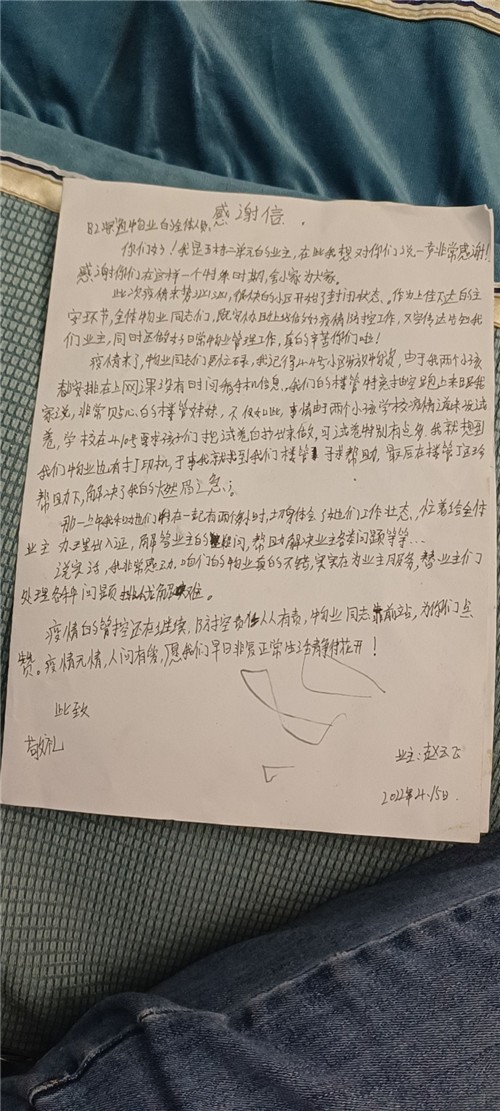 感谢信
物业的全体人员
你们好！我是五栋二单元的业主，在此我想对你们说一声非常感谢！
感谢你们在这样一个特殊时期，舍小家为大家。
此次疫情来势汹汹，很快的小区开始了封闭状态。作为上传下达的主
要环节，全体物业同志们，既要协助上级做好疫情防控工作，又要传达告知我
们业主，同时还做好日常物业管理工作，真的辛苦你们啦！
疫情来了，物业同志们更忙碌，我记得4.4号小区发放物资，由于我两个小孩
都安排在上网课没有时间看手机信息，我们的楼管特意抽空跑上来跟我
家说，非常贴心的楼管妹妹，不仅如此，事情由于两个小孩学校疫情送来说试
卷，学校在4.10号要求孩子们把试卷自抄出来做，可试卷特别有点多，我就想到
我们物业也有打印机，于是我就求到我们楼管寻求帮助，最后在楼管
帮助下，解决了我的燃眉之急。
那一上午我和她们待在一起有两个小时，切身体会了她们工作状态，忙着给全体
业主办理出入证，解答业主的疑问，帮助解决业主各类问题等等…
说实话，我非常感动，咱们的物业真的不错，实实在在为业主服务，替业主们
处理各种问题排忧解难。
疫情的管控还在继续，防控责任人人有责，物业同志靠前站，为你们点
赞。疫情无情，人间有爱，愿我们早日恢复正常生活静待花开！
此致
敬礼
业主：赵云飞
2022年4.15日.